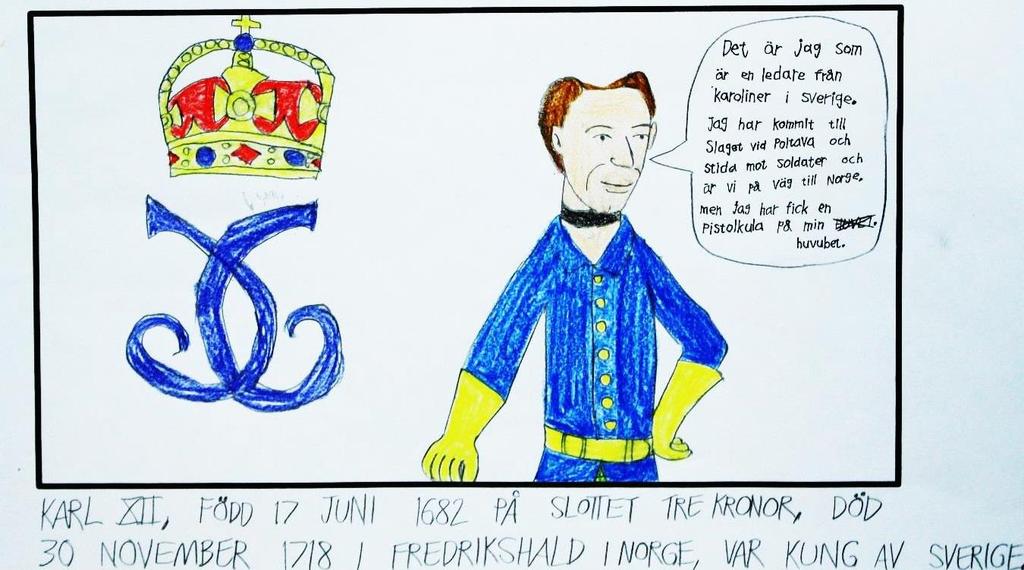 Det är jag som
är en ledare från
karoliner i sverige.
Jag har kommit till
Slaget vid Poltava och
stida mot soldater och
är vi på väg till Norge.
men jag har fick en
Pistolkula på min
huvubet.
KARL XII, FÖDD 17 JUNI 1682 PÅ SLOTTET TRE KRONOR, DÖD
30 NOVEMBER 1718 I FREDRIKSHALD I NORGE, VAR KUNG AV SVERIGE.